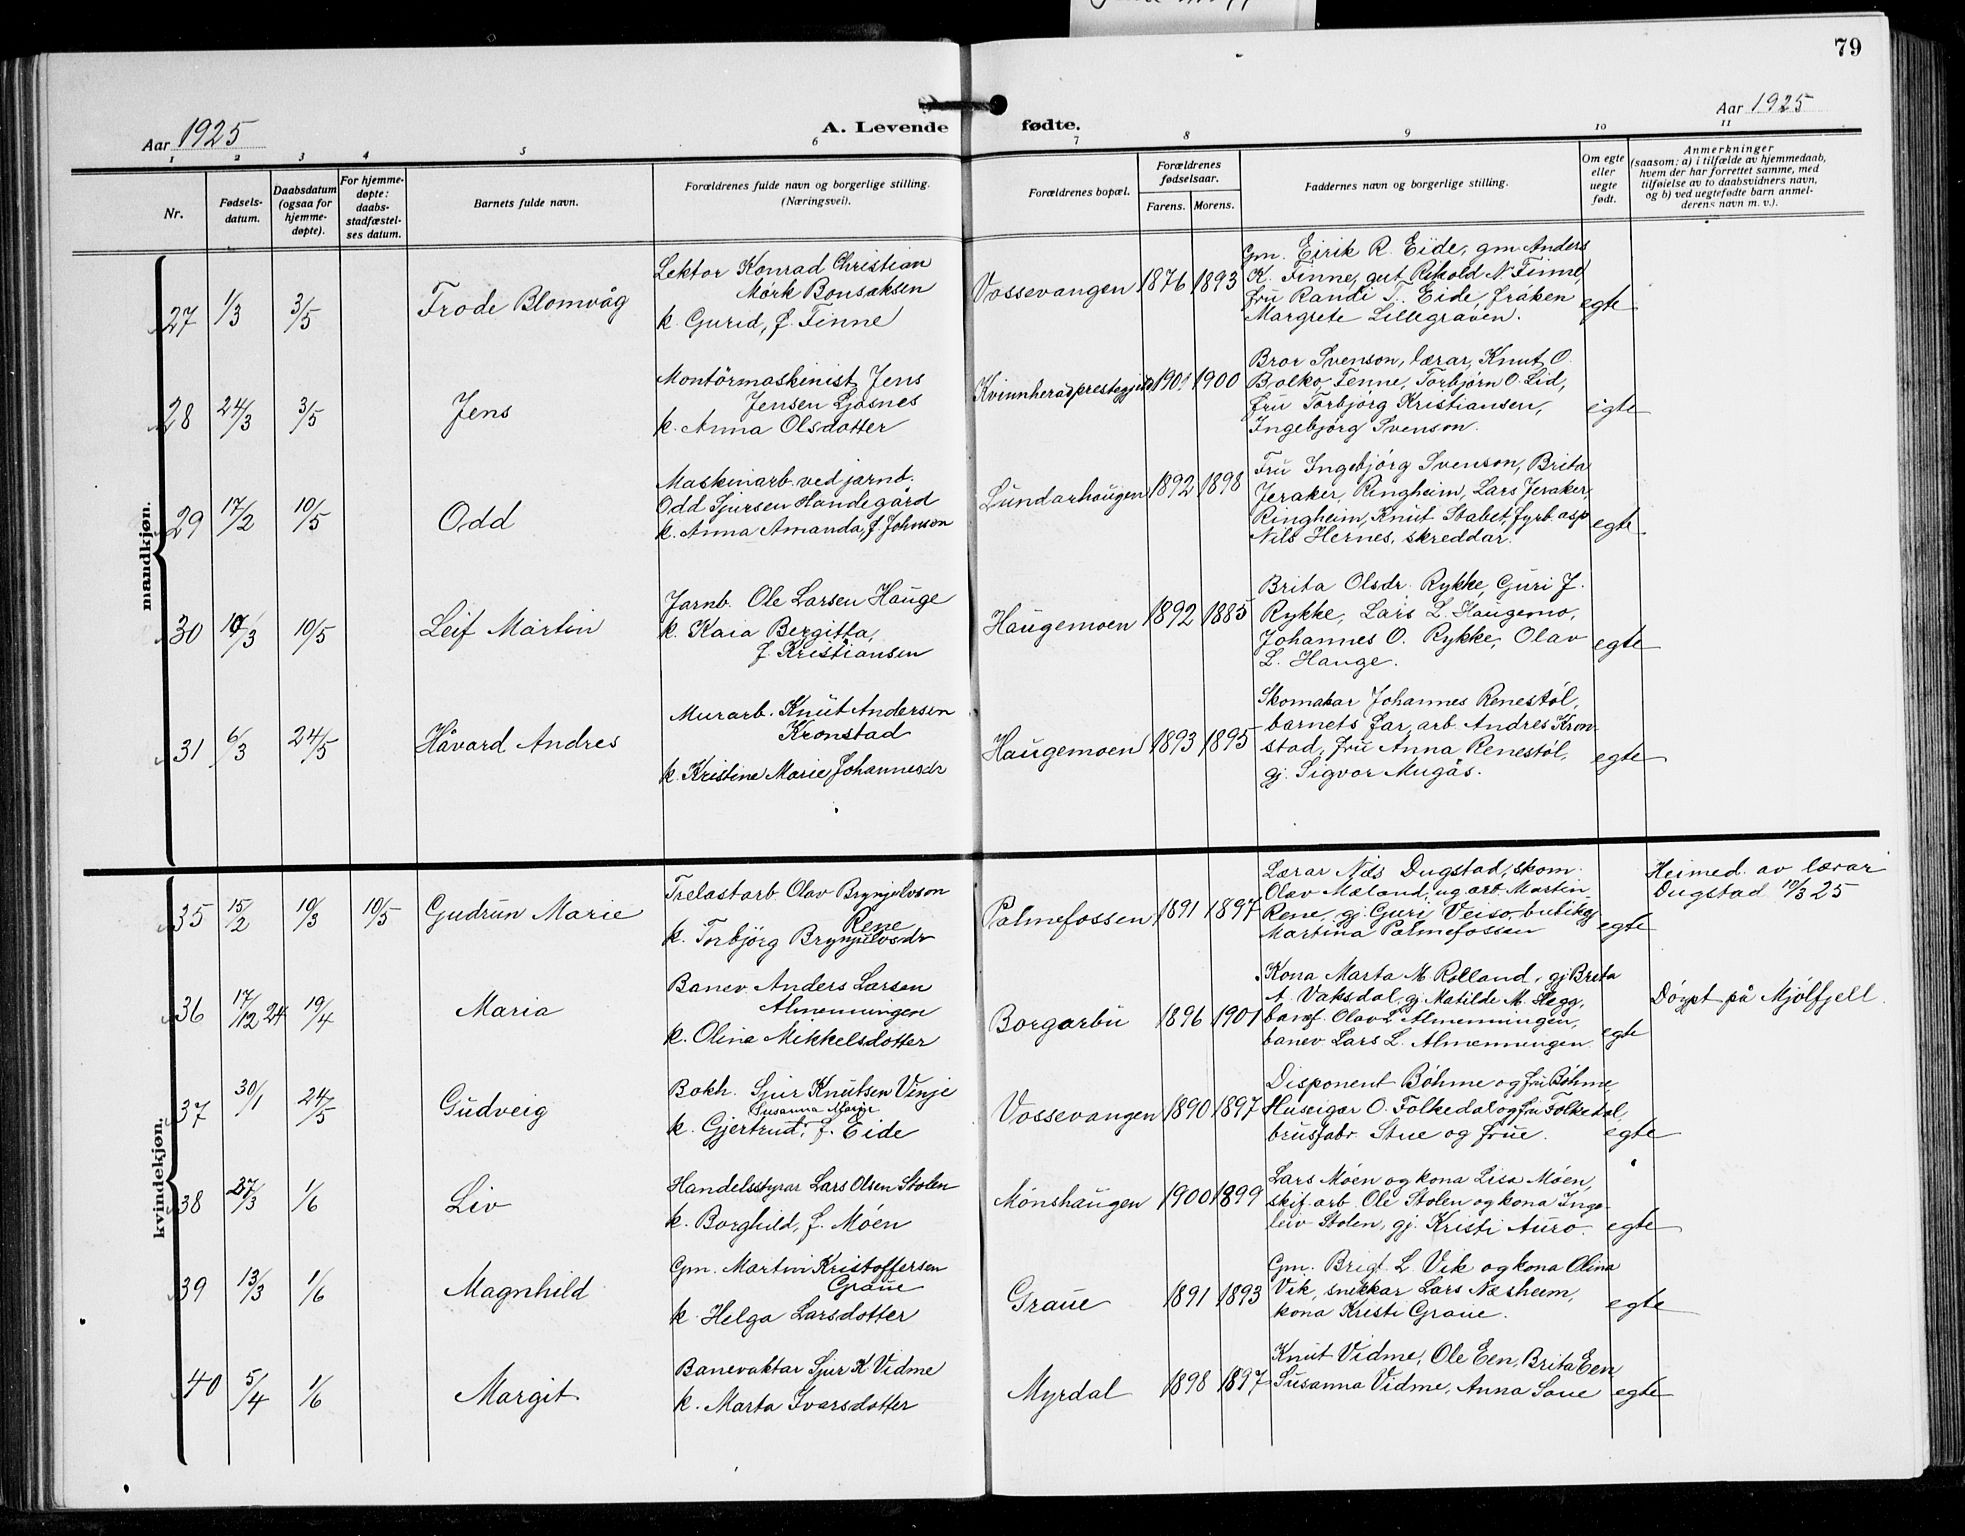 79
Aar 1925
A. Levende fødte.
Aar 1925
1 2 3 4 5 6 7 8 9 10 11
Nr.
Fødsels-
datum.
Daabsdatum
(ogsaa for
hjemme-
døpte).
For hjemme-
døpte:
daabs-
stadfæstel-
ses datum.
Barnets fulde navn.
Forældrenes fulde navn og borgerlige stilling.
(Næringsvei).
Forældrenes bopæl.
Forældrenes
fødselsaar.
Farens. Morens.
Faddernes navn og borgerlige stilling.
Om egte
eller
uegte
født.
Anmerkninger
(saasom: a) i tilfælde av hjemmedaab,
hvem der har forrettet samme, med
tilføielse av to daabsvidners navn,
og b) ved uegtefødte barn anmel-
derens navn m. v.).
mandkjøn.
27 1/3 3/5 Frode Blomvåg
Lektor Konrad Christian
Mörk Bonsaksen
k. Gurid, f. Finne
Vossevangen 1876 1893
Gm. Eirik R. Eide, gm Anders
K. Finne, gut Rikold N. Finne,
fru Randi T. Eide, fröken
Margrete Lillegraven.
egte
28 24/3 3/5 Jens
Montörmaskinist Jens
Jensen Ljosnes
k. Anna Olsdotter
Kvinnherad prestegjeld 1901 1900
Bror Svenson, lærar, Knut O.
Bolko, Tenne, Torbjörn O. Lid,
fru Torbjörg Kristiansen,
Ingebjörg Svenson.
egte
29 17/2 10/5 Odd
Maskinarb. ved jarnb.
Odd Sjursen Handegård
k. Anna Amanda, f. Johnson
Lundarhaugen 1892 1898
Fru Ingebjörg Svenson, Brita
Jeraker, Ringheim, Lars Jeraker,
Ringheim, Knut Stabet, fyrb. asp
Nils Hernes, skreddar.
egte
30 10/3 10/5 Leif Martin
Jarnb. Ole Larsen Hauge
k. Kaia Bergitta,
f. Kristiansen
Haugemoen 1892 1885
Brita Olsdr. Rykke, Guri J.
Rykke, Lars L. Haugemo,
Johannes O. Rykke, Olav
L. Hauge.
egte
31 6/3 24/5 Håvard Andres
Murarb. Knut Andersen
Kronstad
k. Kristine Marie Johannesdr
Haugemoen 1893 1895
Skomakar Johannes Renestöl,
barnets far, arb. Andres Kron-
stad, fru Anna Renestöl,
gj. Sigvor Mugås.
egte
kvindekjøn.
35 15/2 10/3 10/5 Gudrun Marie
Trelastarb. Olav Brynjulvson
Rene
k. Torbjörg Brynjulvsdr
Palmefossen 1891 1897
Lærar Nils Dugstad, skom.
Olav Mæland, ug. arb. Martin
Rene, gj. Guri Veiso, butikgj
Martina Palmefossen
egte
Heimed. av lærar
Dugstad 10/3 25
36 17/12 24 19/4 Maria
Banev. Anders Larsen
Almenningen
k. Olina Mikkelsdotter
Borgarbu 1896 1901
Kona Marta M. Rolland, gj. Brita
A. Vaksdal, gj. Matilde M. Hegg,
banef. Olav L. Almenningen,
banev. Lars L. Almenningen
egte
Döypt på Mjölfjell.
37 30/1 24/5 Gudveig
Bokh. Sjur Knutsen Vinje
Susanna Marie
k. Gjertrud, f. Eide
Vossevangen 1890 1897
Disponent Böhme og fru Böhme
Huseigar O. Folkedal og fru Folkedal,
brusfabr. Stue og frue.
egte
38 27/3 1/6 Liv
Handelsstyrar Lars Olsen Stolen
k. Borghild, f. Möen
Mönshaugen 1900 1899
Lars Möen og kona Lisa Möen,
skif. arb. Ole Stolen og kona Inge-
leiv Stolen, gj. Kristi Auro.
egte
39 13/3 1/6 Magnhild
Gm. Martin Kristoffersen
Graue
k. Helga Larsdotter
Graue 1891 1893
Gm. Brigt. L Vik og kona Olina
Vik, snekkar Lars Næsheim,
kona Kristi Graue.
egte
40 5/4 1/6 Margit
Banevaktar Sjur K. Vidme
k. Marta Ivarsdotter
Myrdal 1898 1897
Knut Vidme, Ole Een, Brita Een
Susanna Vidme, Anna Soue
egte